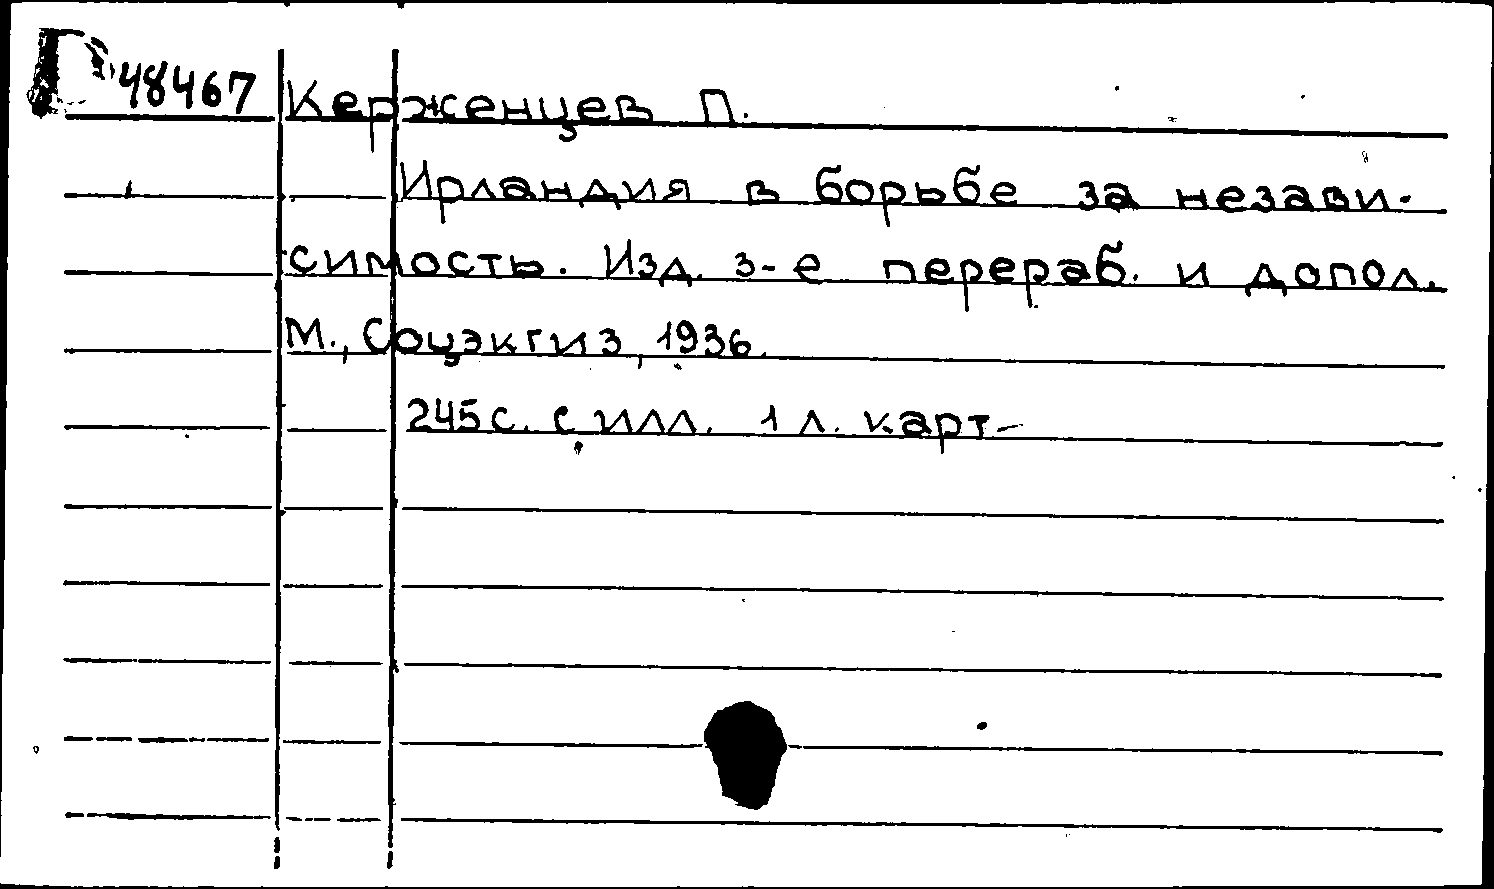 48467 Керженцев П.
Ирландия в борьбе за незави-
симость. Изд. 3-е перераб. и допол.
М., Соцэкгиз, 1936.
245 с. с илл. 1 л. карт-